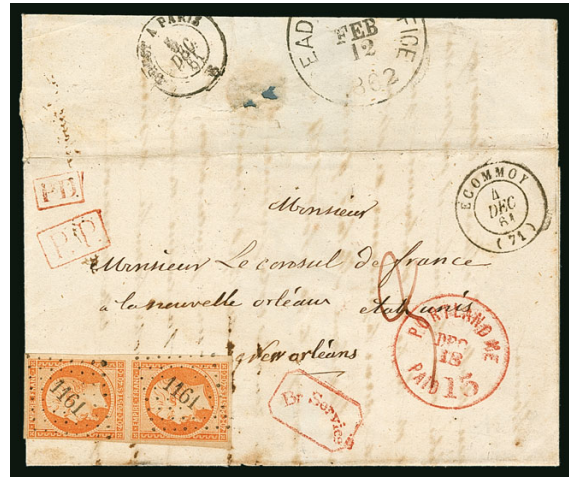 BREST A PARIS
DEC
61
DEAD OFFICE
FEB
12
1862
ECOMMOY
4
DEC
61
(71)
P.D.
P.P.
Monsieur
Monsieur Le consul de france
a la nouvelle orléans etats unis
New orléans
8
PORTLAND ME
DEC
18
PAID 15
Br Service
1161
1161